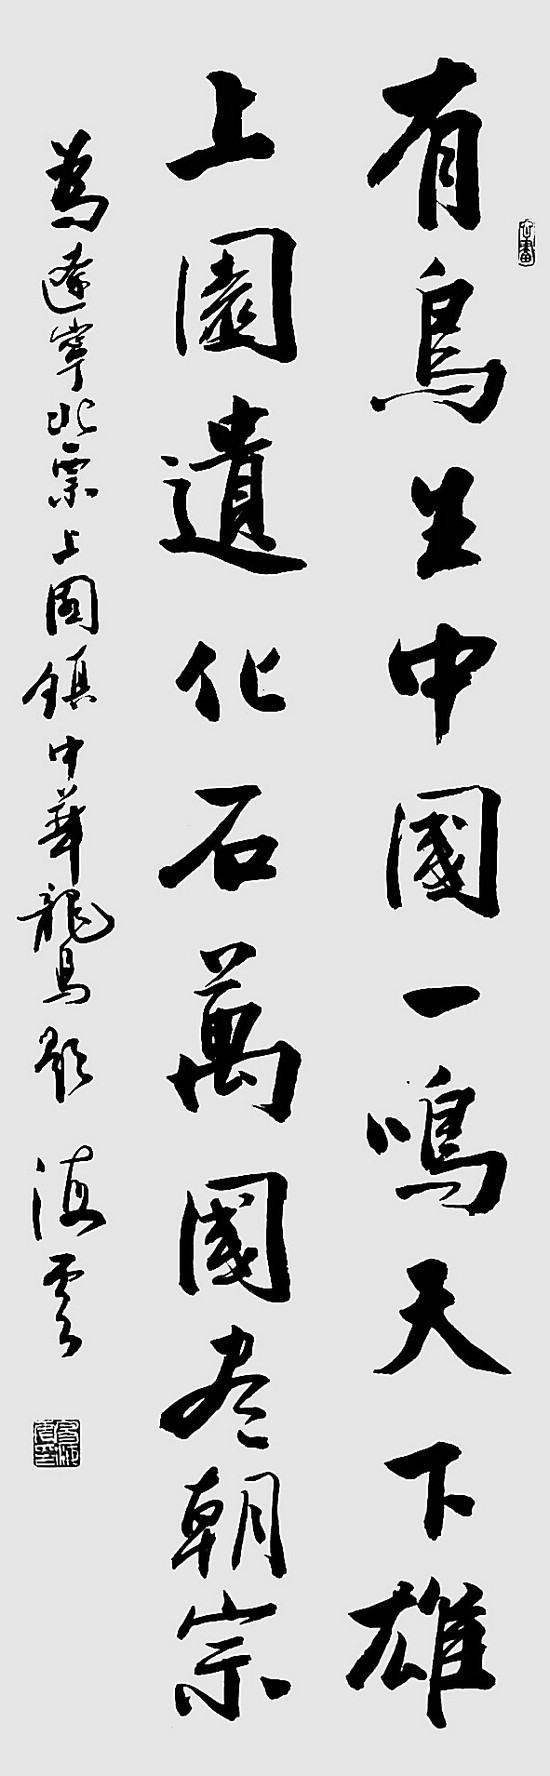 有鳥生中國一鳴天下雄
上園遺化石萬國尽朝宗
為遼寧北票上園鎮中華龍鳥題 海雲